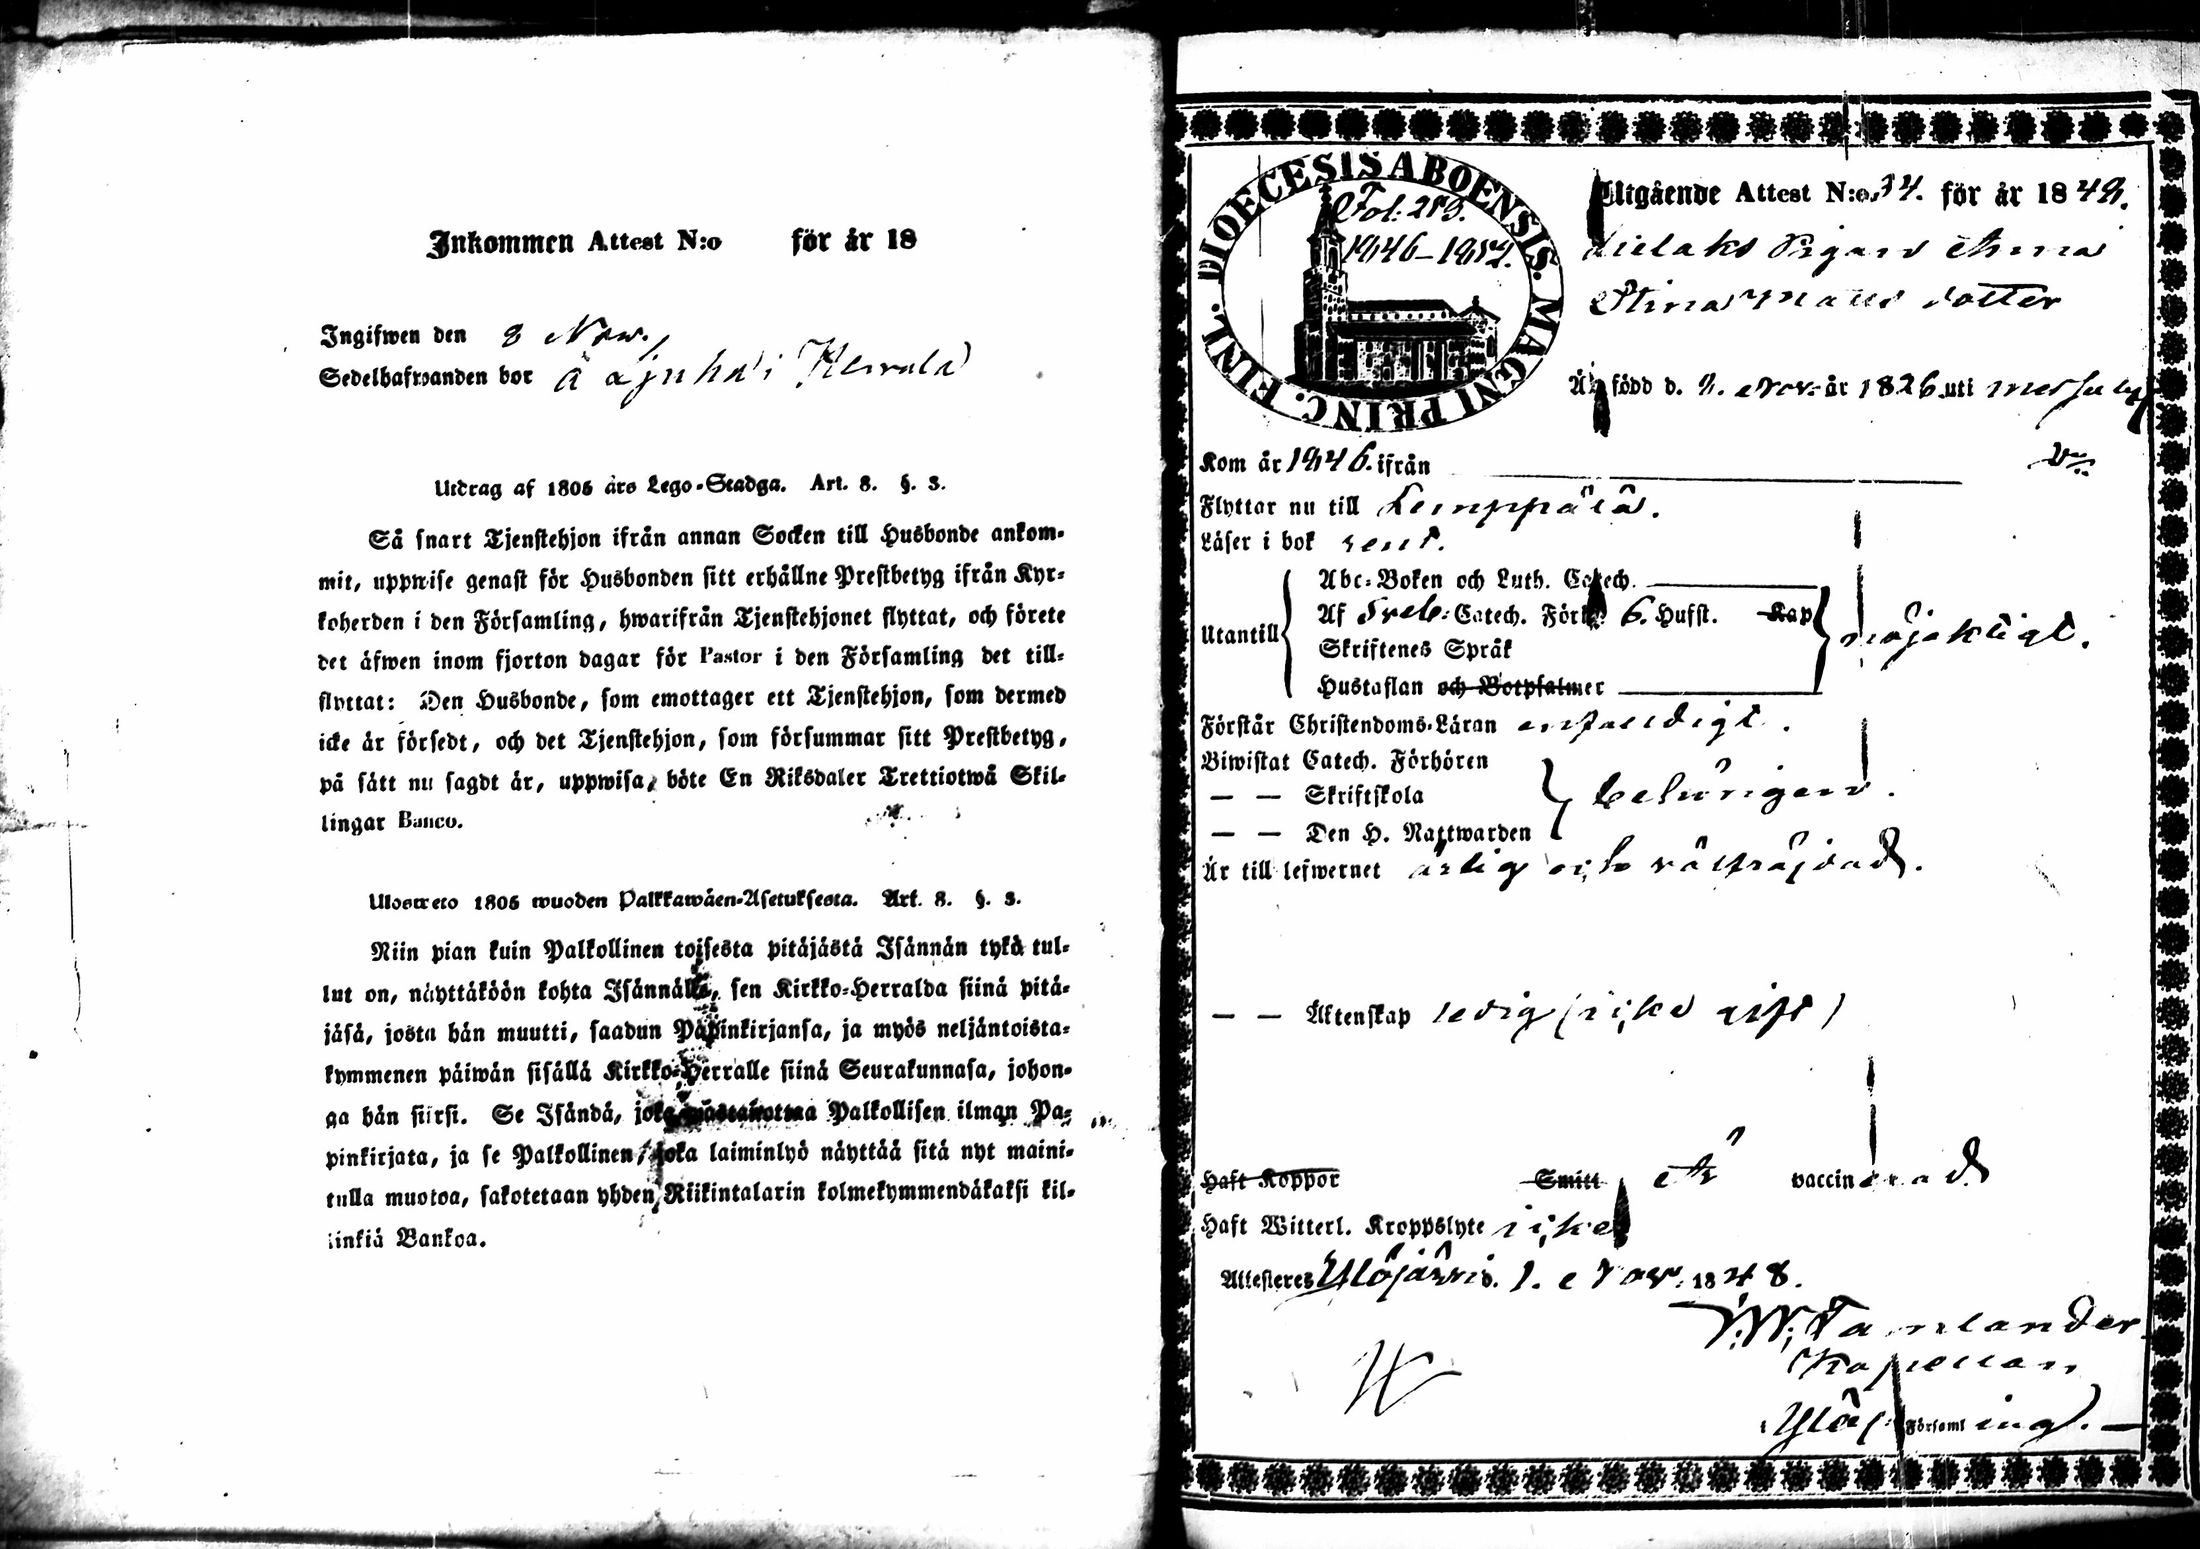 Inkommen Attest N:o för år 18
Ingifwen den 8 Nov.
Sedelhafwanden bor å
Utdrag af 1805 års Lego-Stadga. Art. 8. §. 3.
Så snart Tjenstehjon ifrån annan Socken till Husbonde ankom-
mit, uppwise genast för Husbonden sitt erhållne Prestbetyg ifrån Kyr-
koherden i den Församling, hwarifrån Tjenstehjonet flyttat, och förete
det äfwen inom fjorton dagar för Pastor i den Församling det till-
flyttat: Den Husbonde, som emottager ett Tjenstehjon, som dermed
icke är försedt, och det Tjenstehjon, som försummar sitt Prestbetyg,
på sätt nu sagdt är, uppwisa, böte En Riksdaler Trettiotwå Skil-
lingar Banco.
Ulosweto 1805 wuoden Palkkawäen-Asetuksesta. Art. 8. §. 3.
Niin pian kuin Palkollinen toisesta pitäjästä Isännän tykö tul-
lut on, näyttäköön kohta Isännälle, sen Kirkko-Herralda siinä pitä-
jäsä, josta hän muutti, saadun Papinkirjansa, ja myös neljäntoista-
kymmenen päiwän sisällä Kirkko-Herralle siinä Seurakunnasa, johon-
ga hän siirsi. Se Isändä, joka wastaanottaa Palkollisen ilman Pa-
pinkirjata, ja se Palkollinen, joka laiminlyö näyttää sitä nyt maini-
tulla muotoa, sakotetaan yhden Riikintalarin kolmekymmendäkaksi kil-
linkiä Bankoa.
DIOECESIS ABOENSIS. MAGNI PRINC. FINL.
Fol: 259.
1846-1852.
Utgående Attest N:o 34. för år 1848.
Pigan Anna
Stina Matts dotter
Är född d. 2. Nov. år 1826 uti Messuby
Kom år 1846. ifrån
Flyttar nu till Lemppälä.
Läser i bok rent.
Abc-Boken och Luth. Catech.
Af Sveb: Catech. Förkl. 6. Hufst. Kap
Utantill nöjaktigt.
Skriftenes Språk
Hustaflan och Botpsalmer
Förstår Christendoms-Läran enfaldigt.
Biwistat Catech. Förhören
— — Skriftskola behörigen.
— — Den H. Nattwarden
Är till lefwernet ärlig och välfräjdad.
— — Äktenskap ledig (icke gift)
Haft Koppor Smitt Är vaccinerad
Haft Witterl. Kroppslyte icke
Attesteres Ylöjärvi d. 1. Nov. 1848.
Tamlander
Kapellan
i Ylöj. Församling.